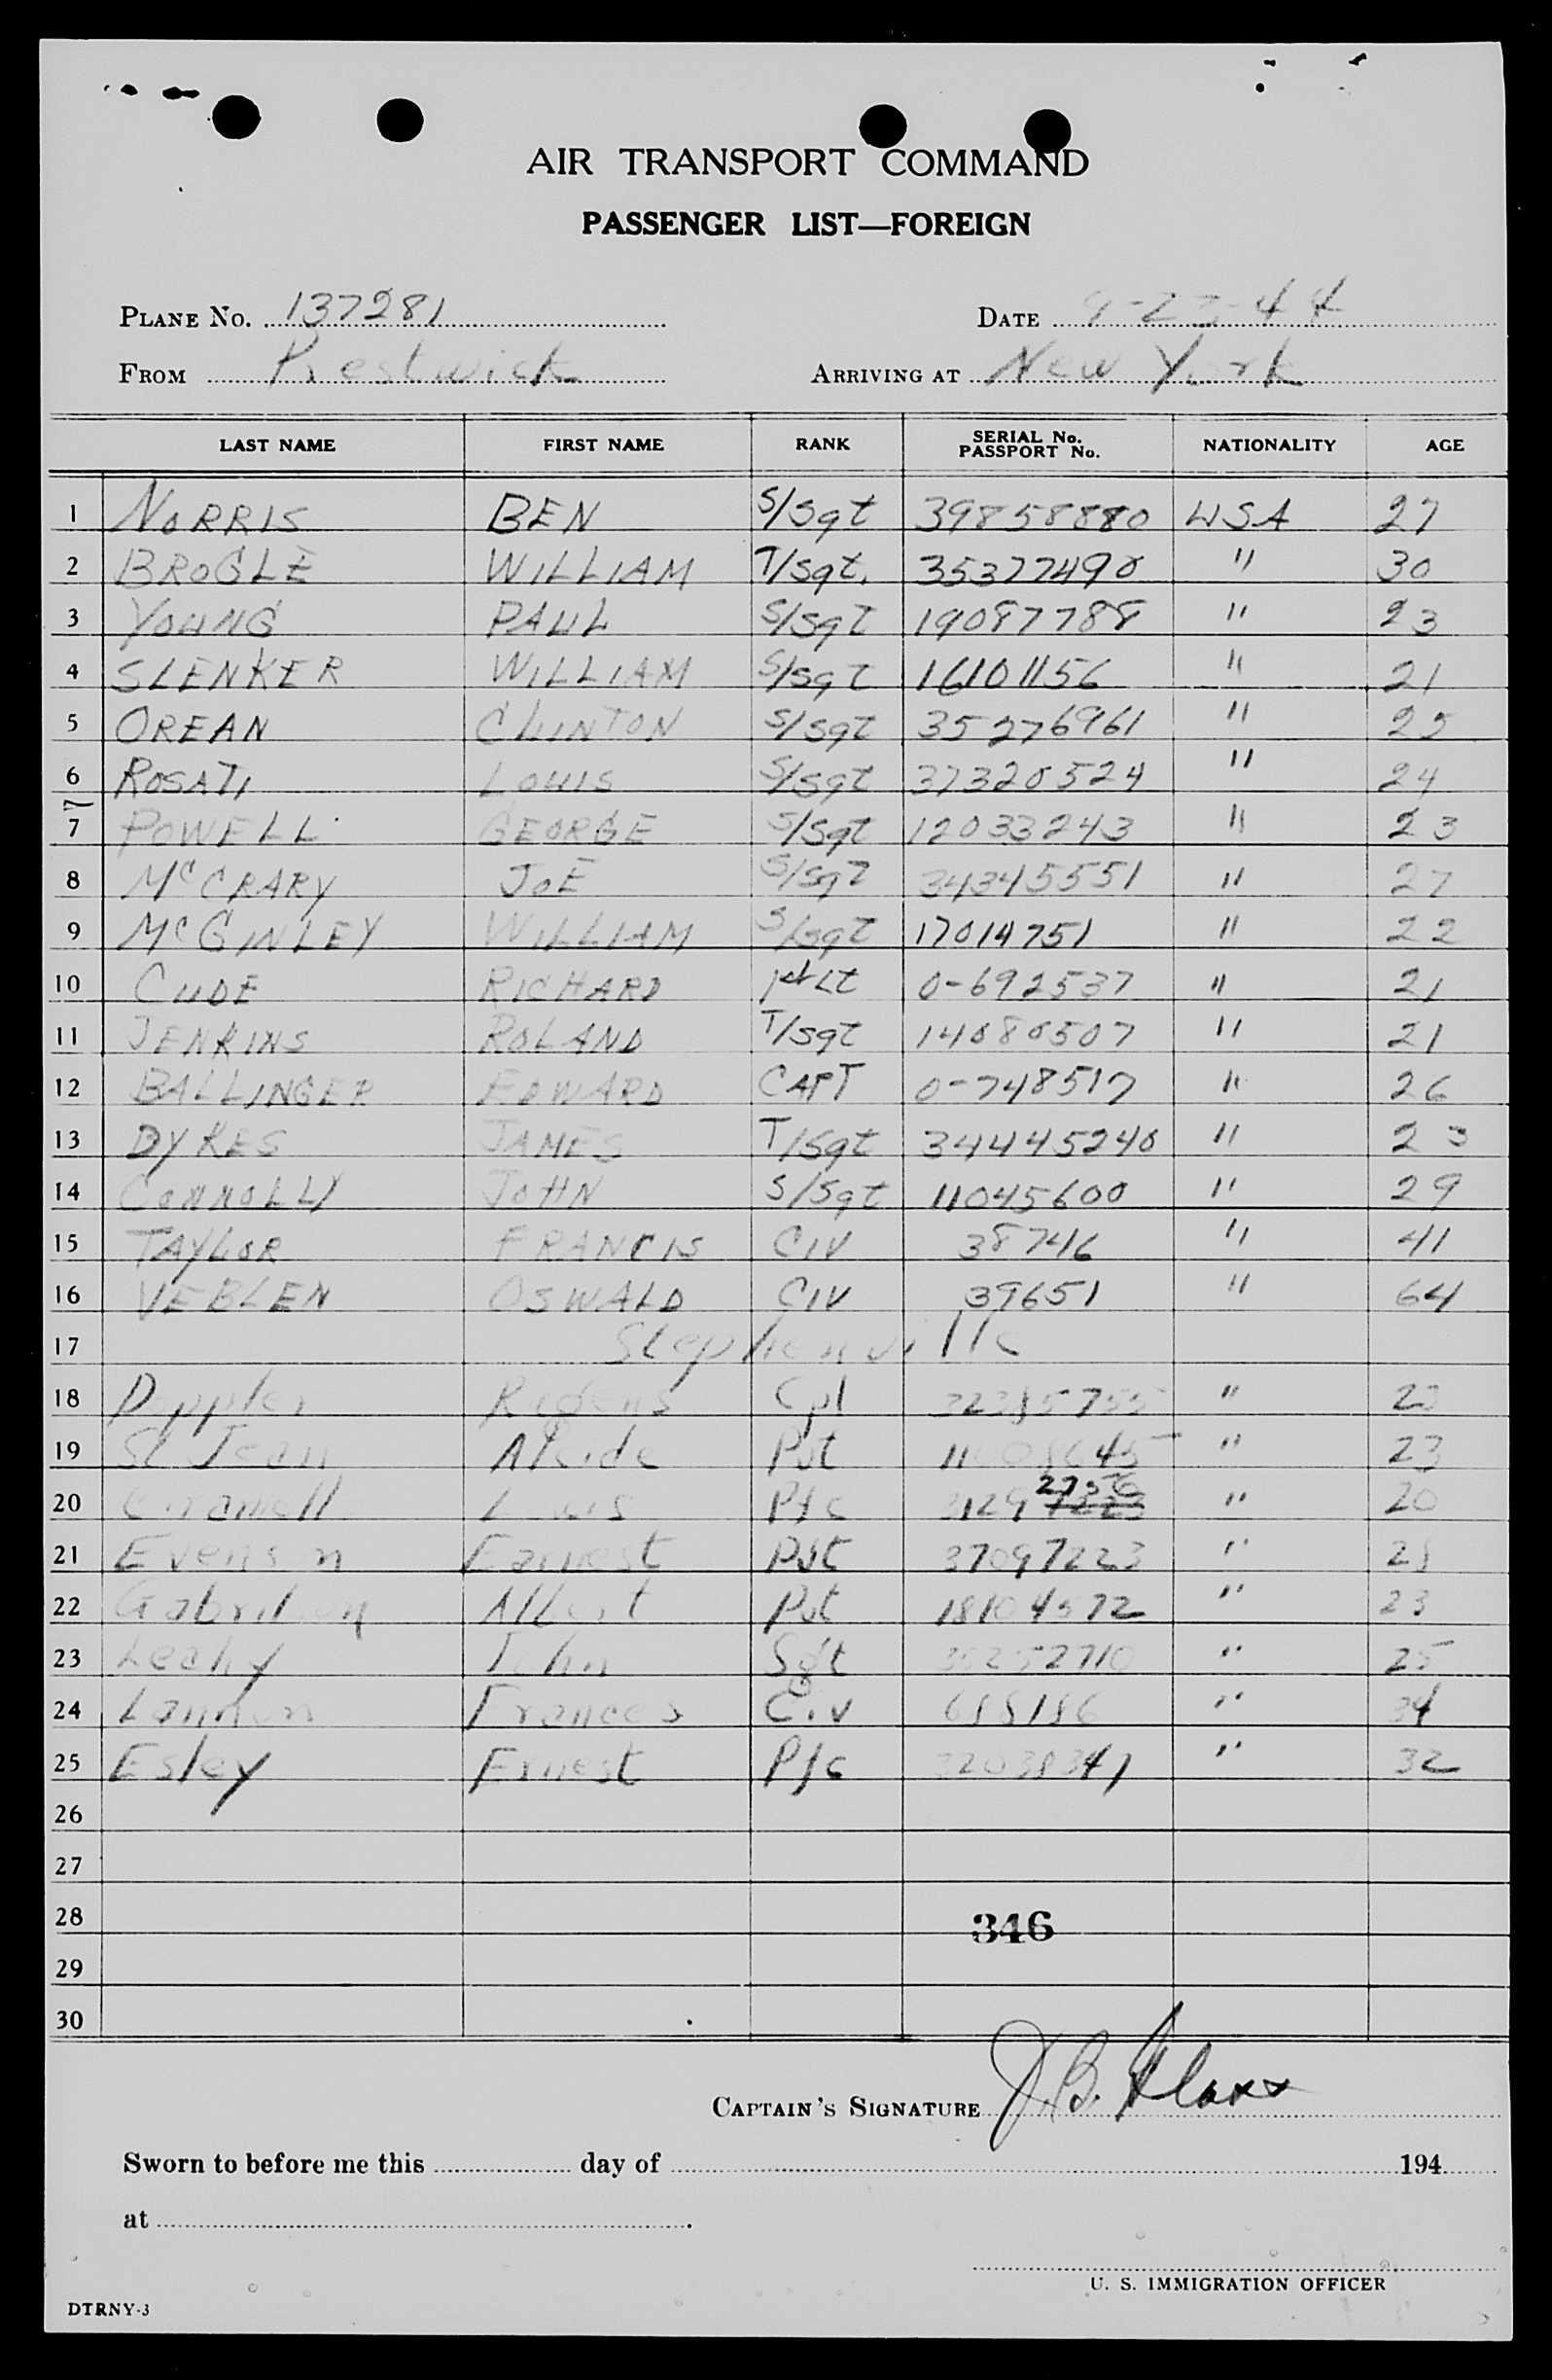 AIR TRANSPORT COMMAND
PASSENGER LIST—FOREIGN
PLANE No. 137281 DATE 9-23-44
FROM Prestwick ARRIVING AT New York
LAST NAME FIRST NAME RANK SERIAL No. PASSPORT No. NATIONALITY AGE
1 NORRIS BEN S/Sgt 39858880 USA 27
2 BROGLE WILLIAM T/Sgt. 35377490 " 30
3 YOUNG PAUL S/Sgt 19087788 " 23
4 SLENKER WILLIAM S/Sgt 16101156 " 21
5 OREAN CLINTON S/Sgt 35276961 " 25
6 ROSATI LOUIS S/Sgt 37320524 " 24
7
7 POWELL GEORGE S/Sgt 12033243 " 23
8 McCRARY JOE S/Sgt 34345551 " 27
9 McGINLEY WILLIAM S/Sgt 17014751 " 22
10 CUDE RICHARD 1st Lt 0-692537 " 21
11 JENKINS ROLAND T/Sgt 14080507 " 21
12 BALLINGER EDWARD CAPT 0-748517 " 26
13 DYKES JAMES T/Sgt 34445240 " 23
14 CONNOLLY JOHN S/Sgt 11045600 " 29
15 TAYLOR FRANCIS CIV 38746 " 41
16 VEBLEN OSWALD CIV 39651 " 64
17 Stephenville
18 Doppler Cpl " 23
19 St Jean Alcide Pvt " 23
20 Louis Pfc 3129 7223 2756 " 20
21 Evenson Earnest Pvt 37097223 "
22 Albert Pvt 18104572 " 23
23 Leahy John Sgt " 25
24 Frances Civ 688186 " 34
25 Esley Ernest Pfc 32038341 " 32
26
27
28 346
29
30
CAPTAIN'S SIGNATURE J.B.
Sworn to before me this day of 194
at
U. S. IMMIGRATION OFFICER
DTRNY-3